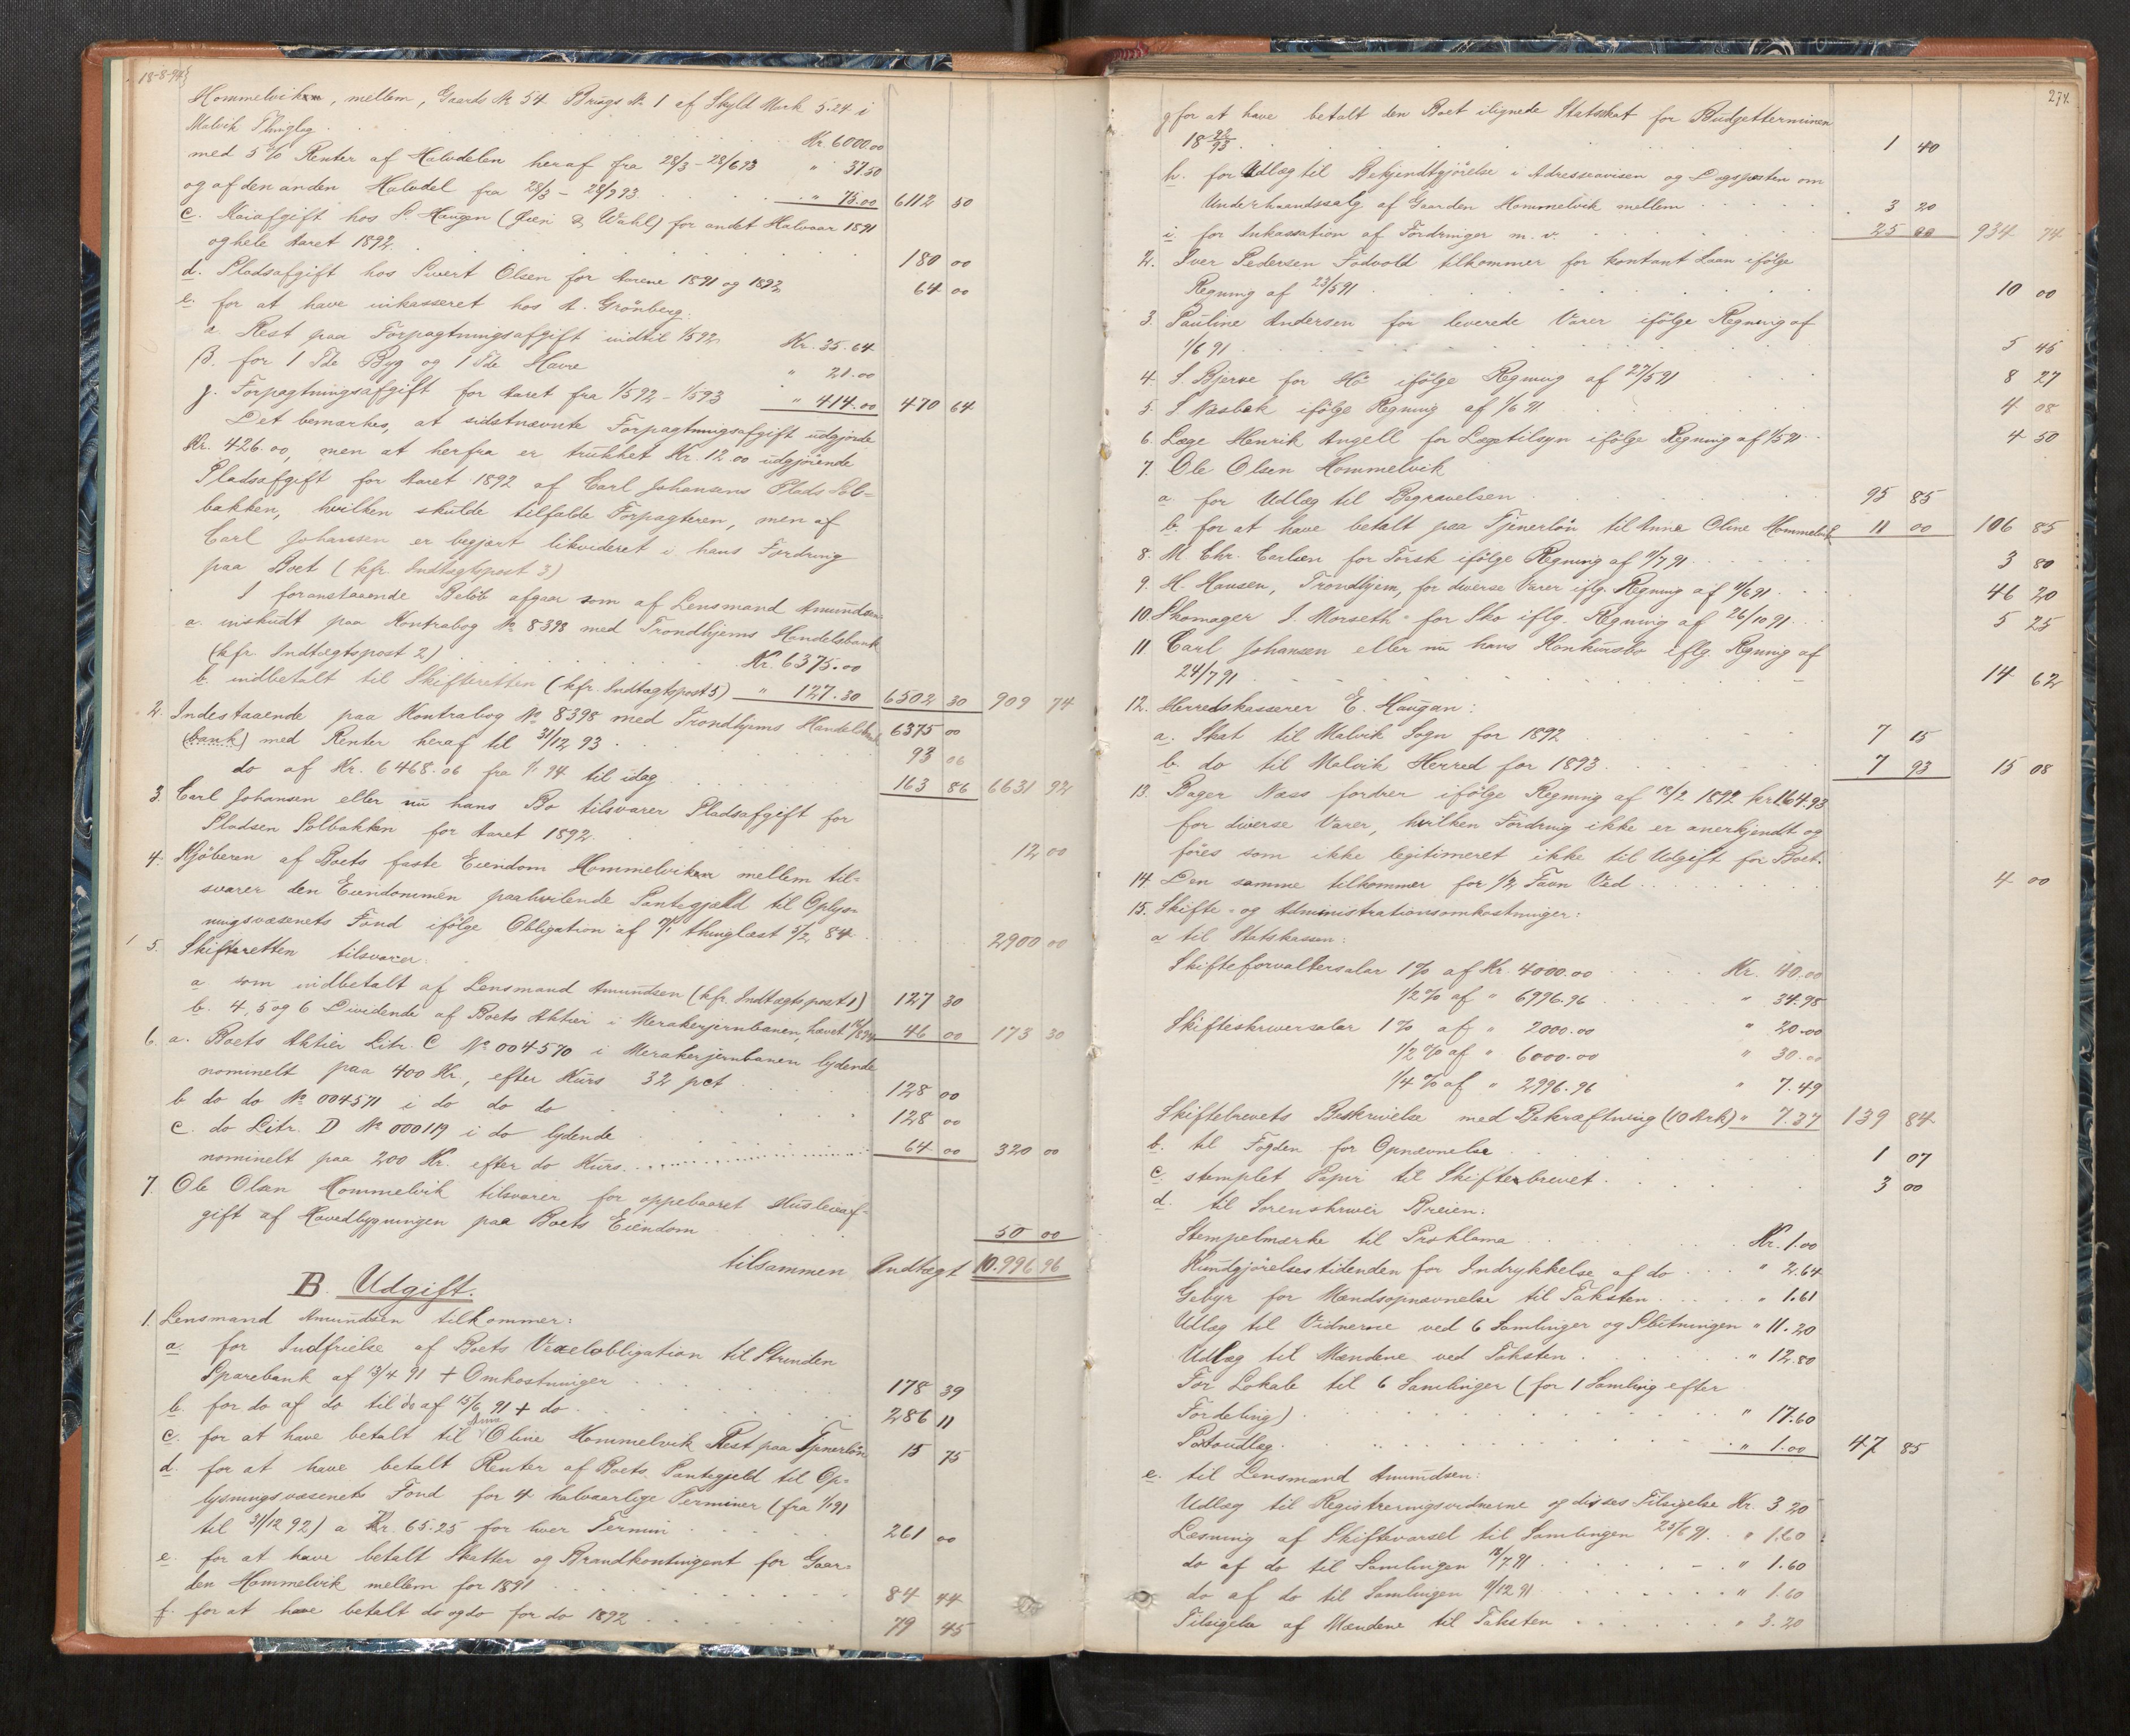 18-8-94
Hommelviken, mellem, Gaards No 54 Brugs No 1 af Skyld Mark 5.24 i
Malvik Thinglag . . . Kr. 6000.00
med 5% Renter af Halvdelen heraf fra 28/3 - 28/6 93 " 37.50
og af den anden Halvdel fra 28/3 - 28/9 93 . . . " 75.00 6112 50
c. Kaiafgift hos P. Haugen (Jæri & Wahl) for andet Halvaar 1891
og hele Aaret 1892 . . . 180 00
d. Pladsafgift hos Sivert Olsen for Aarene 1891 og 1892 64 00
e. for at have inkasseret hos A. Grönberg:
a. Rest paa Forpagtningsafgift indtil 1/5 92 Kr. 35.64
β. for 1 Tde Byg og 1 Tde Havre " 21.00
γ. Forpagtningsafgift for Aaret fra 1/5 92 - 1/5 93 " 414.00 470 64
Det bemærkes, at sidstnævnte Forpagtningsafgift udgjorde
Kr. 426.00, men at herfra er trukket Kr. 12.00 udgjörende
Pladsafgift for Aaret 1892 af Carl Johansens Plads Sol=
bakken, hvilken skulde tilfalde Forpagteren, men af
Carl Johansen er begjært likvideret i hans Fordring
paa Boet (kfr. Indtægtspost 3)
I foranstaaende Beløb afgaar som af Lensmand Amundsen
a. indskudt paa Kontrabog No 8398 med Trondhjems Handelsbank
(kfr. Indtægtspost 2) . . . Kr. 6375.00
b. indbetalt til Skifteretten (kfr. Indtægtspost 5) " 127.30 6502 30 909 74
2. Indestaaende paa Kontrabog No 8398 med Trondhjems Handelsbank 6375 00
(bank) med Renter heraf til 31/12 93 . . . 93 06
do af Kr. 6468.06 fra 1/1 94 til idag . . . 163 86 6631 92
3. Carl Johansen eller nu hans Bo tilsvarer Pladsafgift for
Pladsen Solbakken for Aaret 1892 . . . 12 00
4. Kjöberen af Boets faste Eiendom Hommelviken mellem til=
svarer den Eiendommen paahvilende Pantegjæld til Oplys=
ningsvæsenets Fond ifölge Obligation af thinglæst 5/2 84 2900 00
5. Skifteretten tilsvarer:
a. som indbetalt af Lensmand Amundsen (kfr. Indtægtspost 1) 127 30
b. 4, 5 og 6 Dividende af Boets Aktier i Merakerjernbanen, hævet 46 00 173 30
6. a. Boets Aktier Litr. C No 004570 i Merakerjernbanen lydende
nominelt paa 400 Kr, efter Kurs 32 pct . . . 128 00
b do do No 004571 i do do do . . . 128 00
c. do Litr. D No 000119 i do lydende
nominelt paa 200 Kr. efter do Kurs . . . 64 00 320 00
7. Ole Olsen Hommelvik tilsvarer for oppebaaret Husleieaf=
gift af Hovedbygningen paa Boets Eiendom 50 00
tilsammen Indtægt 10.996 96
B. Udgift.
1. Lensmand Amundsen tilkommer:
a. for Indfrielse af Boets Vexelobligation til Strinden
Sparebank af 13/4 91 + Omkostninger . . . 178 39
b. for do af do til do af 15/6 91 + do . . . 286 11
c. for at have betalt til Anna Oline Hommelvik Rest paa Tjenerløn 15 75
d. for at have betalt Renter af Boets Pantegjeld til Op=
lysningsvæsenets Fond for 4 halvaarlige Terminer (fra 1/1 91
til 31/12 92) a Kr. 65.25 for hver Termin . . . 261 00
e. for at have betalt Skatter og Brandkontingent for Gaar=
den Hommelvik mellem for 1891 . . . 84 44
f. for at have betalt do og do for do 1892 . . . 79 45
274.
g for at have betalt den Boet ilignede Statsskat for Budgetterminen
18 92/93 . . . 1 40
h. for Udlæg til Bekjendtgjörelse i Adresseavisen og Dagsposten om
Underhaandssalg af Gaarden Hommelvik mellem . . . 3 20
i for Inkassation af Fordringer m. v. . . . 25 00 934 74
2. Iver Pedersen Fodvold tilkommer for kontant Laan ifölge
Regning af 23/5 91 . . . 10 00
3. Pauline Andersen for leverede Varer ifölge Regning af
1/6 91 . . . 5 45
4. S. Bjerve for Hö ifölge Regning af 27/5 91 8 27
5. S. Næsbak ifölge Regning af 1/6 91 4 08
6. Læge Henrik Angell for Lægetilsyn ifölge Regning af 1/5 91 4 50
7. Ole Olsen Hommelvik
a for Udlæg til Begravelsen . . . 95 85
b. for at have betalt paa Tjenerlön til Anna Oline Hommelvik 11 00 106 85
8. M Chr. Carlsen for Torsk ifölge Regning af 11/7 91 3 80
9. H. Hansen, Trondhjem, for diverse Varer iflg. Regning af 11/6 91 46 20
10. Skomager I. Morseth for Sko iflg. Regning af 26/10 91 5 25
11 Carl Johansen eller nu hans Konkursbo iflg. Regning af
24/7 91 . . . 14 62
12. Herredskasserer E. Haugan:
a. Skat til Malvik Sogn for 1892 . . . 7 15
b. do til Malvik Herred for 1893 . . . 7 93 15 08
13. Bager Næss fordrer ifölge Regning af 18/2 1892 kr 164.93
for diverse Varer, hvilken Fordring ikke er anerkjendt og
föres som ikke legitimeret ikke til Udgift for Boet.
14 Den samme tilkommer for 1/2 Favn Ved . . . 4 00
15. Skifte- og Administrationsomkostninger:
a til Statskassen:
Skifteforvaltersalar 1% af Kr. 4000.00 Kr. 40.00
1/2% af " 6996.96 " 34.98
Skifteskriversalar 1% af " 2000.00 " 20.00
1/2% af " 6000.00 " 30.00
1/4% af " 2996.96 " 7.49
Skiftebrevets Beskrivelse med Bekræftning (10 Ark) " 7.37 139 84
b. til Fogden for Opnævnelse . . . 1 07
c. stemplet Papir til Skiftebrevet . . . 3 00
d. til Sorenskriver Breien:
Stempelmærke til Proklama . . . Kr. 1.00
Kundgjörelsestidenden for Indrykkelse af do " 2.64
Gebyr for Mændsopnævnelse til Taksten . . . " 1.61
Udlæg til Vidnerne ved 6 Samlinger og Slutningen " 11.20
Udlæg til Mændene ved Taksten . . . " 12.80
For Lokale til 6 Samlinger (for 1 Samling efter
Fordeling) . . . " 17.60
Portoudlæg . . . " 1.00 47 85
e. til Lensmand Amundsen:
Udlæg til Registreringsvidnerne og disses Tilsigelse Kr. 3 20
Læsning af Skiftevarsel til Samlingen 25/6 91 " 1.60
do af do til Samlingen 18/7 91 . . . " 1.60
do af do til Samlingen 11/12 91 . . . " 1.60
Tilsigelse af Mændene til Taksten . . . " 3.20